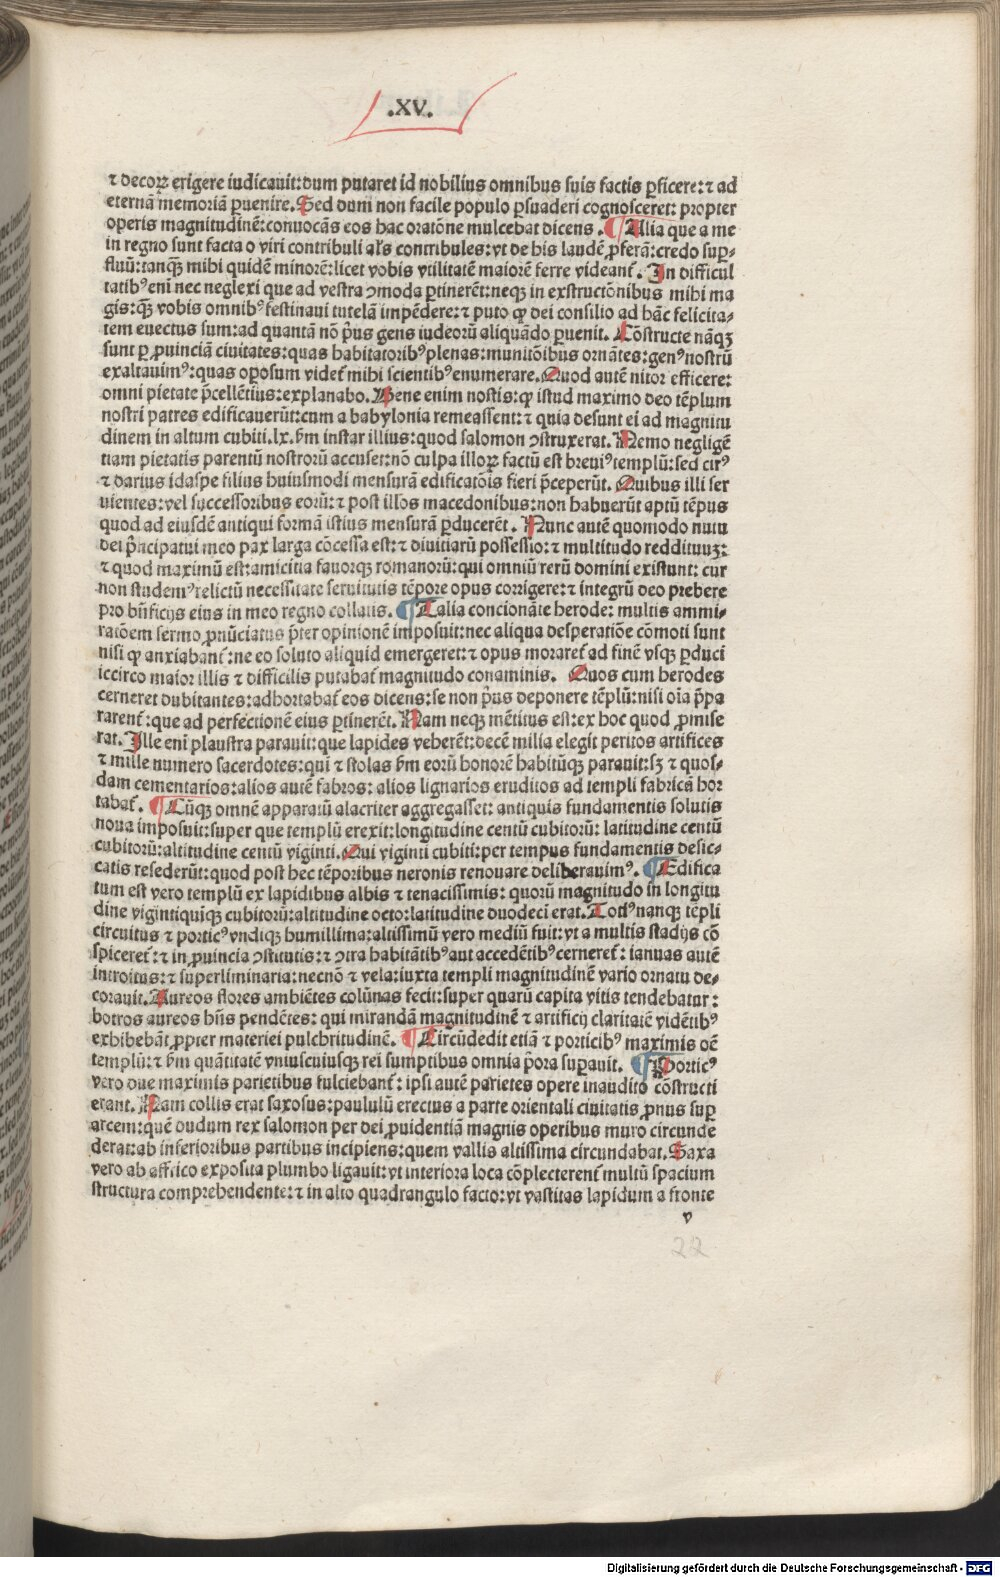 .XV.
⁊ decoꝝ erigere iudicauit:dum putaret id nobilius omnibus suis factis ꝑficere:⁊ ad
eternā memoriā ꝑuenire. Sed dum non facile populo ꝑsuaderi cognosceret: propter
operis magnitudinē:conuocās eos hac oratōne mulcebat dicens . ¶ Alia que a me
in regno sunt facta o viri contribuli aľs contribules:vt de his laudē ꝓferā:credo suꝑ-
fluū:tanqꝫ mihi quidē minorē:licet vobis vtilitatē maiorē ferre videant᷑ . In difficul
tatibꝰ eni nec neglexi que ad vestra ꝯmoda ꝑtinerēt:neqꝫ in exstructōnibus mihi ma
gis:qꝫ vobis omnibꝰ festinaui tutelā impēdere:⁊ puto ꝙ dei consilio ad hāc felicita-
tem euectus sum:ad quantā nō p̄us gens iudeorū aliquādo ꝑuenit. Cōstructe nāqꝫ
sunt ꝑ ꝓuinciā ciuitates:quas habitatoribꝰ plenas:munitōibus ornātes:genꝰ nostrū
exaltauimꝰ:quas oꝑosum videt᷑ mihi scientibꝰ enumerare. Quod autē nitor efficere:
omni pietate p̄cellētius:explanabo. Bene enim nostis:ꝙ istud maximo deo tēplum
nostri patres edificauerūt:cum a babylonia remeassent:⁊ quia desunt ei ad magnitu
dinem in altum cubiti.lx. ẜm instar illius:quod salomon ꝯstruxerat. Nemo negligē
tiam pietatis parentū nostrorū accuset:nō culpa illoꝝ factū est breuiꝰ templū:sed cirꝰ
⁊ darius idaspe filius huiusmodi mensurā edificatōis fieri p̄ceperūt. Quibus illi ser
uientes:vel successoribus eorū:⁊ post illos macedonibus:non habuerūt aptū tēpus
quod ad eiusdē antiqui formā istius mensurā ꝑducerēt . Nunc autē quomodo nutu
dei p̄ncipatui meo pax larga cōcessa est:⁊ diuitiarū possessio:⁊ multitudo reddituuꝫ:
⁊ quod maximū est:amicitia fauorqꝫ romanorū:qui omniū rerū domini existunt: cur
non studemꝰ relictū necessitate seruitutis tēpore opus corrigere:⁊ integrū deo prebere
pro bn̄ficijs eius in meo regno collatis. ¶ Talia concionāte herode: multis ammi-
ratōem sermo ꝓnūciatus p̄ter opinionē imposuit:nec aliqua desperatiōe cōmoti sunt
nisi ꝙ anxiabant᷑:ne eo soluto aliquid emergeret:⁊ opus moraret᷑ ad finē vsqꝫ ꝑduci
iccirco maior illis ⁊ difficilis putabat᷑ magnitudo conaminis. Quos cum herodes
cerneret dubitantes:adhortabat᷑ eos dicens:se non p̄us deponere tēplū:nisi oīa p̄pa
rarent᷑:que ad perfectionē eius ꝑtinerēt. Nam neqꝫ mētitus est:ex hoc quod ꝓmise
rat. Ille eni plaustra parauit:que lapides veherēt:decē milia elegit peritos artifices
⁊ mille numero sacerdotes:qui ⁊ stolas ẜm eorū honorē habitūqꝫ parauit:sꝫ ⁊ quos-
dam cementarios:alios autē fabros: alios lignarios eruditos ad templi fabricā hor
tabat᷑. ¶ Cūqꝫ omnē apparatū alacriter aggregasset: antiquis fundamentis solutis
noua imposuit:super que templū erexit:longitudine centū cubitorū: latitudine centū
cubitorū:altitudine centū viginti. Qui viginti cubiti:per tempus fundamentis desic-
catis resederūt:quod post hec tēporibus neronis renouare deliberauimꝰ. ¶ Edifica
tum est vero templū ex lapidibus albis ⁊ tenacissimis: quorū magnitudo in longitu
dine vigintiquīqꝫ cubitorū:altitudine octo:latitudine duodeci erat. Totiꝰ nanqꝫ tēpli
circuitus ⁊ porticꝰ vndiqꝫ humillima:altissimū vero mediū fuit:vt a multis stadijs cō
spiceret᷑:⁊ in ꝓuincia ꝯstitutis:⁊ ꝯtra habitātibꝰ aut accedētibꝰ cerneret᷑: ianuas autē
introitus:⁊ superliminaria:necnō ⁊ vela:iuxta templi magnitudinē vario ornatu de-
corauit. Aureos flores ambiētes colūnas fecit:super quarū capita vitis tendebatur:
botros aureos hn̄s pendētes: qui mirandā magnitudinē ⁊ artificij claritatē vidētibꝰ
exhibebāt ꝓpter materiei pulchritudinē. ¶ Circūdedit etiā ⁊ porticibꝰ maximis oē
templū:⁊ ẜm quātitatē vniuscuiusqꝫ rei sumptibus omnia p̄ora suꝑauit. ¶ Porticꝰ
vero due maximis parietibus fulciebant᷑: ipsi autē parietes opere inaudito cōstructi
erant. Nam collis erat saxosus:paululū erectus a parte orientali ciuitatis ꝓnus suꝑ
arcem:quē dudum rex salomon per dei ꝓuidentiā magnis operibus muro circunde
derat:ab inferioribus partibus incipiens:quem vallis altissima circundabat. Saxa
vero ab affrico exposita plumbo ligauit:vt interiora loca cōplecterent᷑ multū spacium
structura comprehendente:⁊ in alto quadrangulo facto:vt vastitas lapidum a fronte
v
22
Digitalisierung gefördert durch die Deutsche Forschungsgemeinschaft - DFG